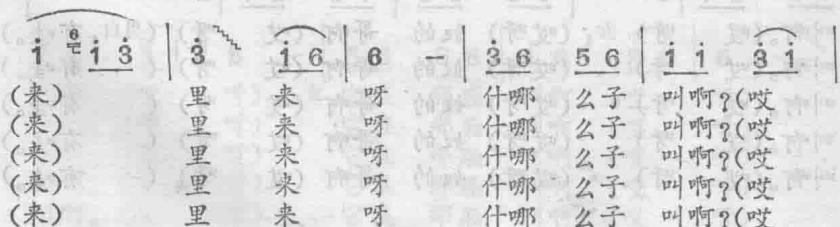 i 6 i 3 | 3 i 6 | 6 － | 3 6 5 6 | i i 3 i |
(来) 里 来 呀 什哪 么子 叫啊?(哎
(来) 里 来 呀 什哪 么子 叫啊?(哎
(来) 里 来 呀 什哪 么子 叫啊?(哎
(来) 里 来 呀 什哪 么子 叫啊?(哎
(来) 里 来 呀 什哪 么子 叫啊?(哎